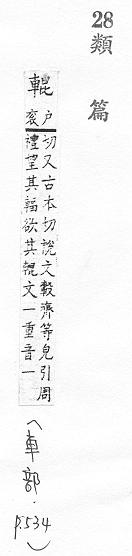 28
類篇
輥
戶
袞
切又古本切說文轂齊等皃引周
禮望其輻欲其輥文一重音一
(車部.
p.534)